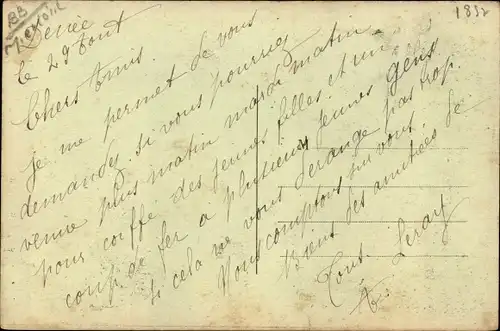 1832
BB
Denée
le 29 Aout
Chers Amis
Je me permet de vous
demander si vous pourriez
venir plus matin mardi matin
pour coiffé des jeunes filles et un
coup de fer a plusieurs jeunes gens
si cela ne vous derange pas trop.
Nous comptons sur vous.
Biens des amitiées de
Tous. Leray